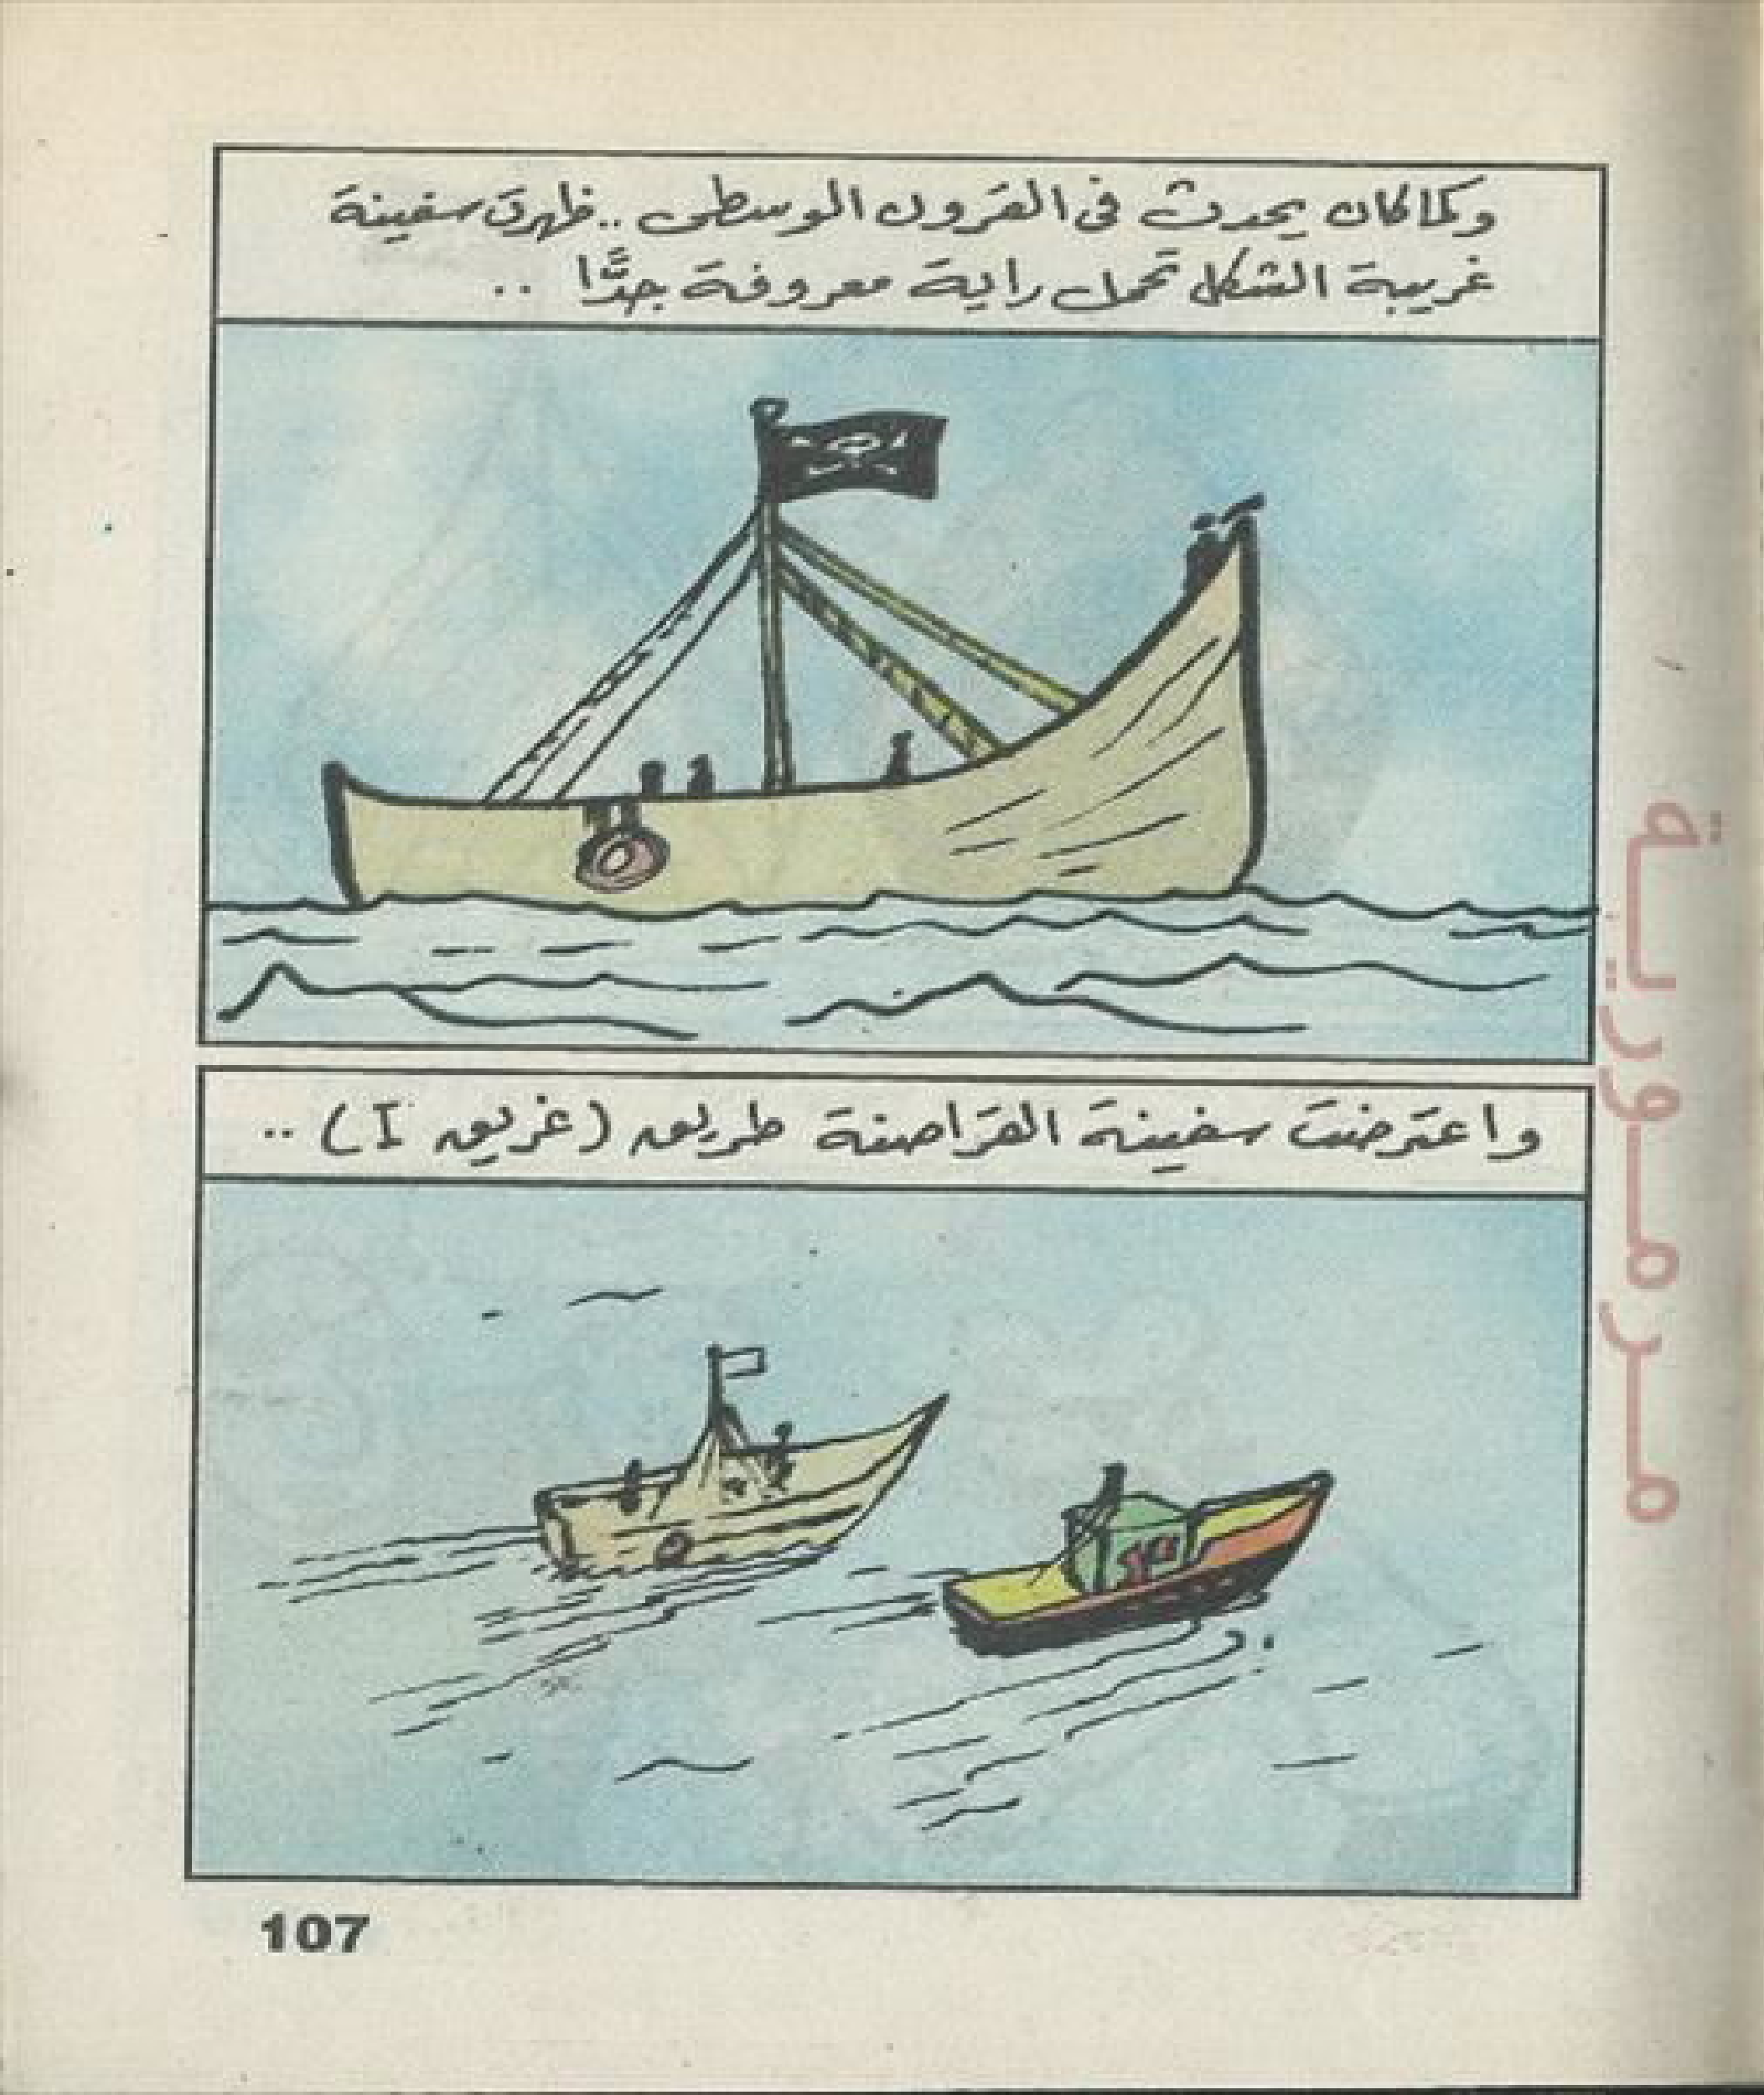 وكما كان يحدث فى القرون الوسطى .. ظهرت سفينة
غريبة الشكل تحمل راية معروفة جدًّا ..
واعترضت سفينة القراصنة طريق (غريق I) ..
107
مـرمـوريـة